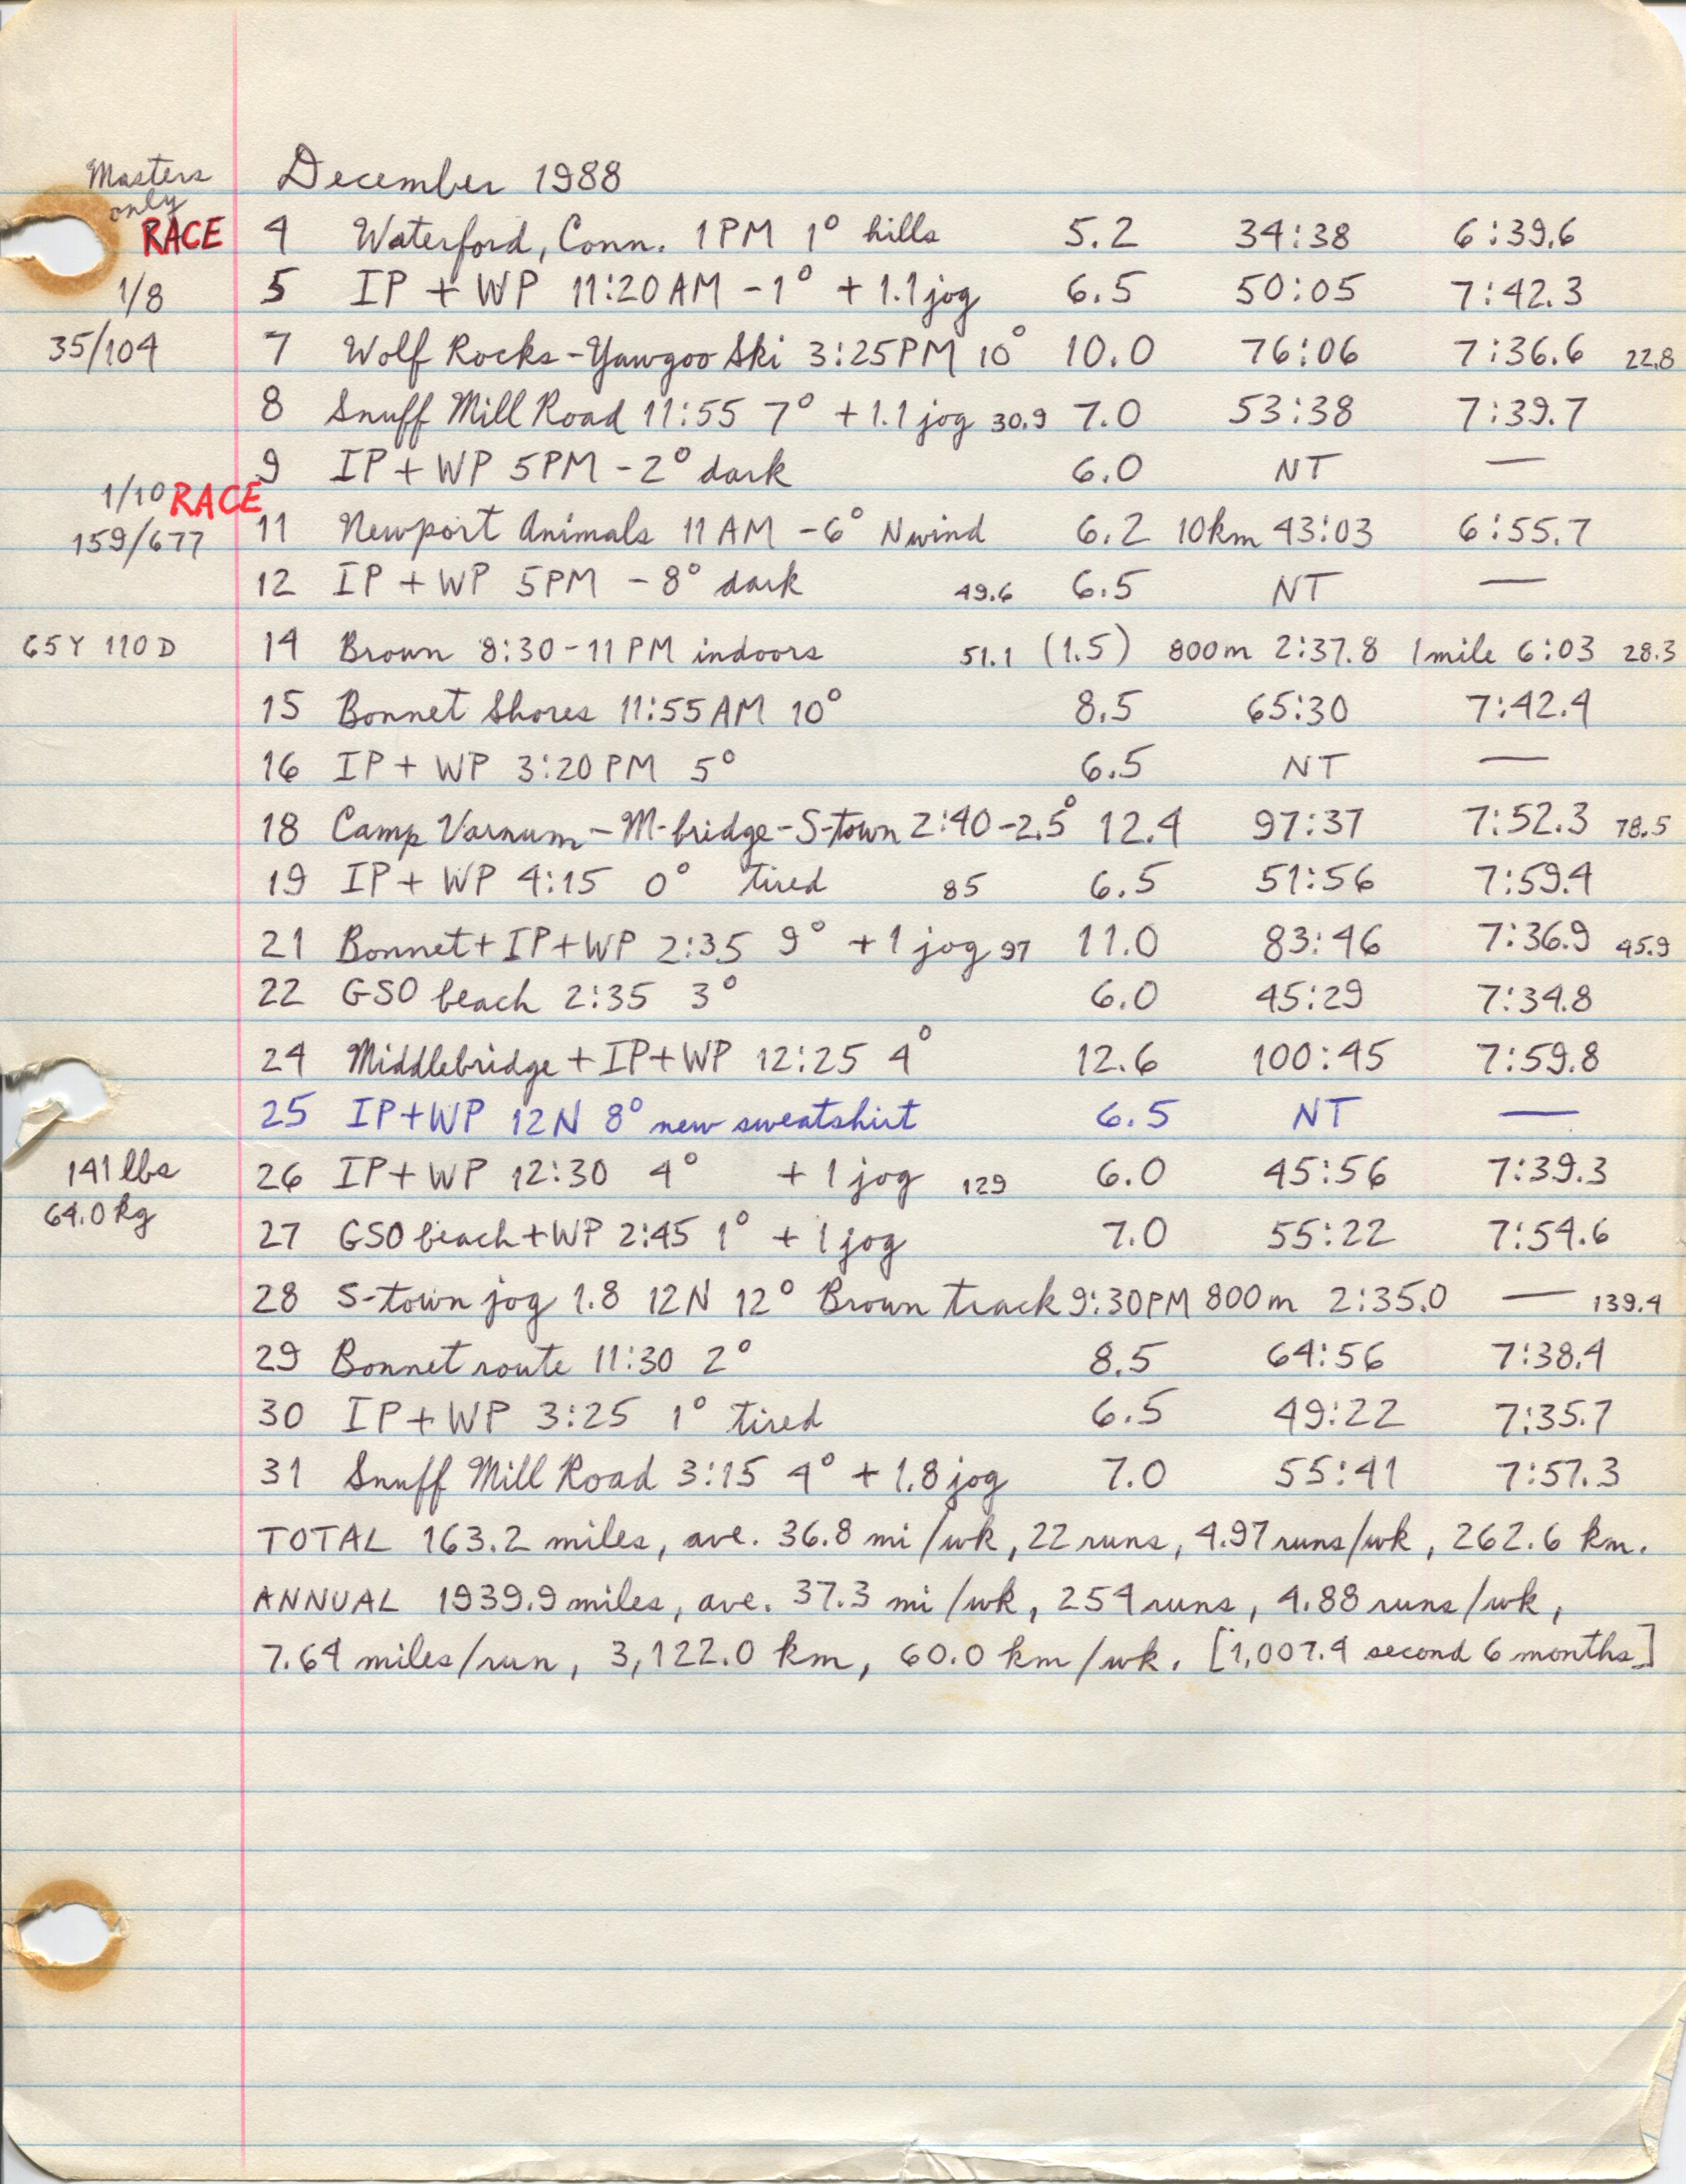 Masters only
December 1988
RACE 4 Waterford, Conn. 1PM 1° hills 5.2 34:38 6:39.6
1/8 5 IP + WP 11:20AM -1° +1.1 jog 6.5 50:05 7:42.3
35/104 7 Wolf Rocks-Yawgoo Ski 3:25PM 10° 10.0 76:06 7:36.6 22.8
8 Snuff Mill Road 11:55 7° +1.1 jog 30.9 7.0 53:38 7:39.7
9 IP+WP 5PM -2° dark 6.0 NT —
1/10 RACE
159/677 11 Newport Animals 11AM -6° N wind 6.2 10km 43:03 6:55.7
12 IP + WP 5PM -8° dark 49.6 6.5 NT —
65Y 110D 14 Brown 8:30-11PM indoors 51.1 (1.5) 800m 2:37.8 1mile 6:03 28.3
15 Bonnet Shores 11:55AM 10° 8.5 65:30 7:42.4
16 IP+ WP 3:20PM 5° 6.5 NT —
18 Camp Varnum-M-bridge-S-town 2:40 -2.5° 12.4 97:37 7:52.3 78.5
19 IP+ WP 4:15 0° tired 85 6.5 51:56 7:59.4
21 Bonnet+IP+WP 2:35 9° +1 jog 97 11.0 83:46 7:36.9 45.9
22 GSO beach 2:35 3° 6.0 45:29 7:34.8
24 Middlebridge+IP+WP 12:25 4° 12.6 100:45 7:59.8
25 IP+WP 12N 8° new sweatshirt 6.5 NT —
141 lbs 26 IP+ WP 12:30 4° +1 jog 129 6.0 45:56 7:39.3
64.0 kg 27 GSO beach+WP 2:45 1° +1 jog 7.0 55:22 7:54.6
28 S-town jog 1.8 12N 12° Brown track 9:30PM 800m 2:35.0 — 139.4
29 Bonnet route 11:30 2° 8.5 64:56 7:38.4
30 IP+WP 3:25 1° tired 6.5 49:22 7:35.7
31 Snuff Mill Road 3:15 4° +1.8 jog 7.0 55:41 7:57.3
TOTAL 163.2 miles, ave. 36.8 mi/wk, 22 runs, 4.97 runs/wk, 262.6 km.
ANNUAL 1939.9 miles, ave. 37.3 mi/wk, 254 runs, 4.88 runs/wk,
7.64 miles/run, 3,122.0 km, 60.0 km/wk. [1,007.4 second 6 months]